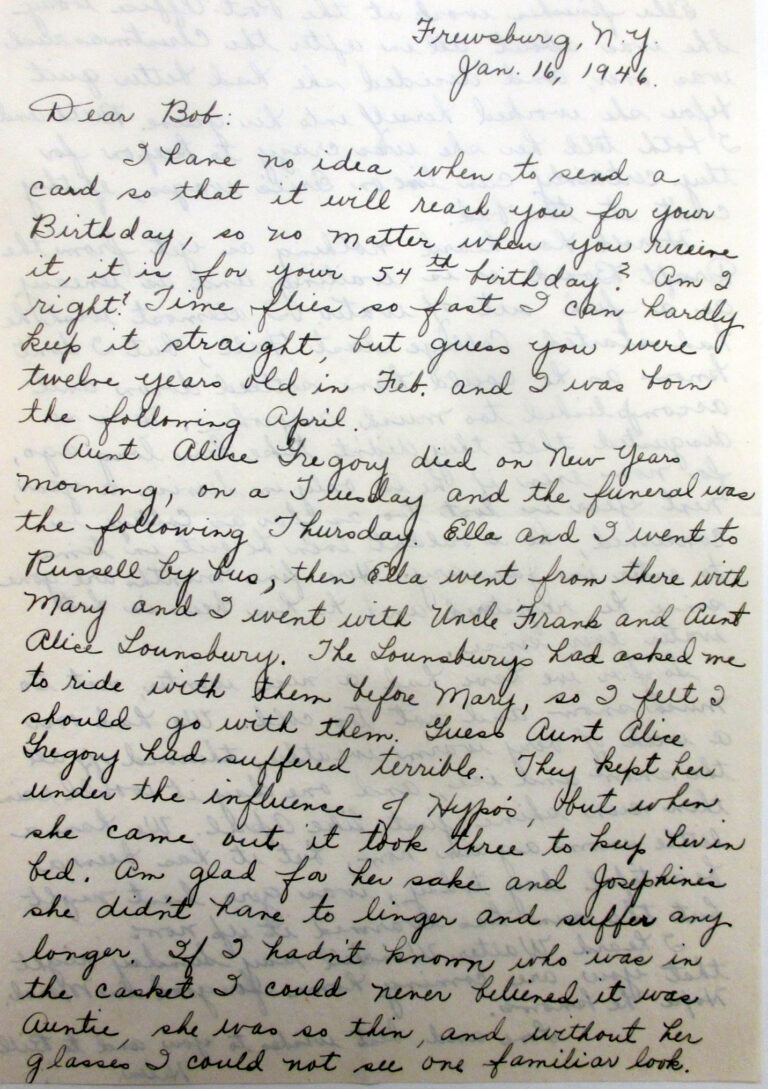 Frewsburg, N.Y.
Jan. 16, 1946.
Dear Bob:
I have no idea when to send a
card so that it will reach you for your
Birthday, so no matter when you receive
it, it is for your 54th birthday? Am I
right? Time flies so fast I can hardly
keep it straight, but guess you were
twelve years old in Feb. and I was born
the following April.
Aunt Alice Gregory died on New Years
morning, on a Tuesday and the funeral was
the following Thursday. Ella and I went to
Russell by bus, then Ella went from there with
Mary and I went with Uncle Frank and Aunt
Alice Lounsbury. The Lounsbury's had asked me
to ride with them before Mary, so I felt I
should go with them. Guess Aunt Alice
Gregory had suffered terrible. They kept her
under the influence of Hypo's, but when
she came out it took three to keep her in
bed. Am glad for her sake and Josephine's
she didn't have to linger and suffer any
longer. If I hadn't known who was in
the casket I could never believed it was
Auntie, she was so thin, and without her
glasses I could not see one familiar look.